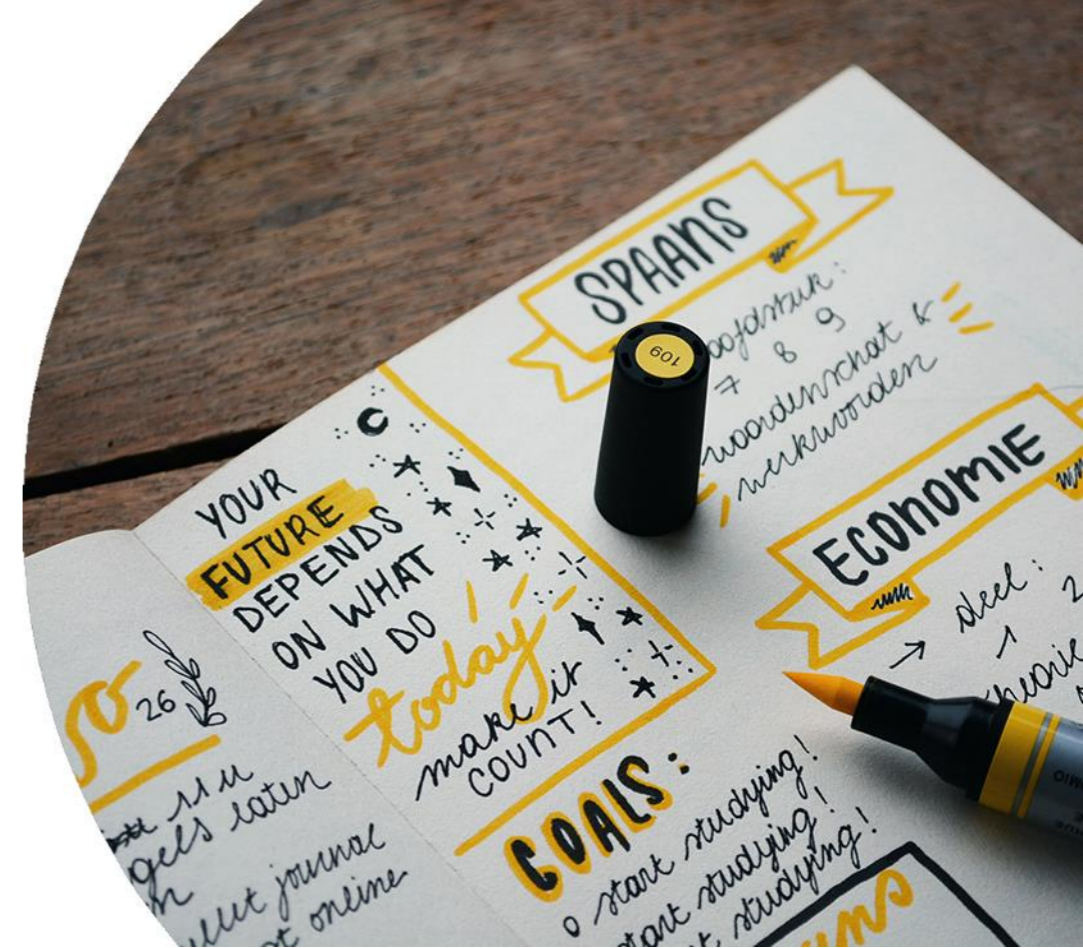 SPAANS
hoofdstuk:
7 8 9
woordenschat &
werkwoorden
109
ECONOMIE
→ deel:
1 2
theorie
YOUR
FUTURE
DEPENDS
ON WHAT
YOU DO
today
make it
COUNT!
GOALS:
o start studying!
start studying!
start studying!
26
laten
bullet journal
online